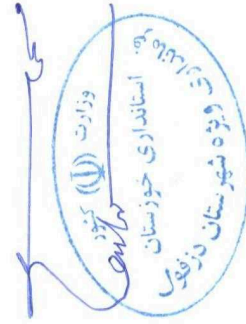 وزارت کشور
استانداری خوزستان
فرمانداری ویژه شهرستان دزفول